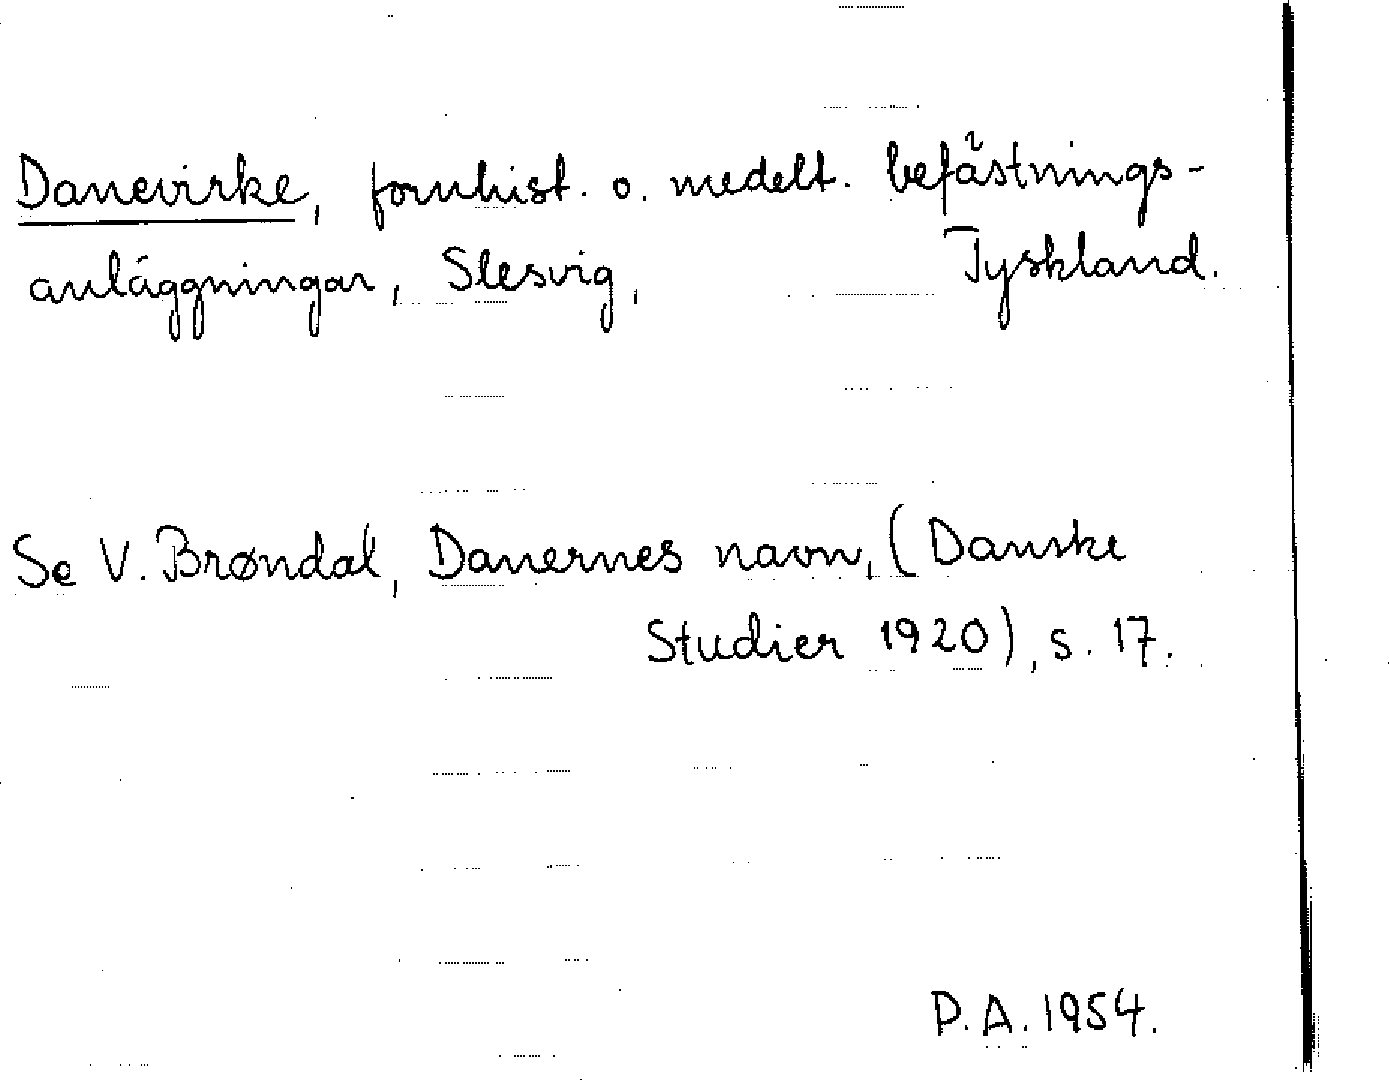 Danevirke, fornhist. o. medelt. befästnings-
anläggningar, Slesvig, Tyskland.
Se V. Brøndal, Danernes navn, (Danske
Studier 1920), s. 17.
P.A. 1954.